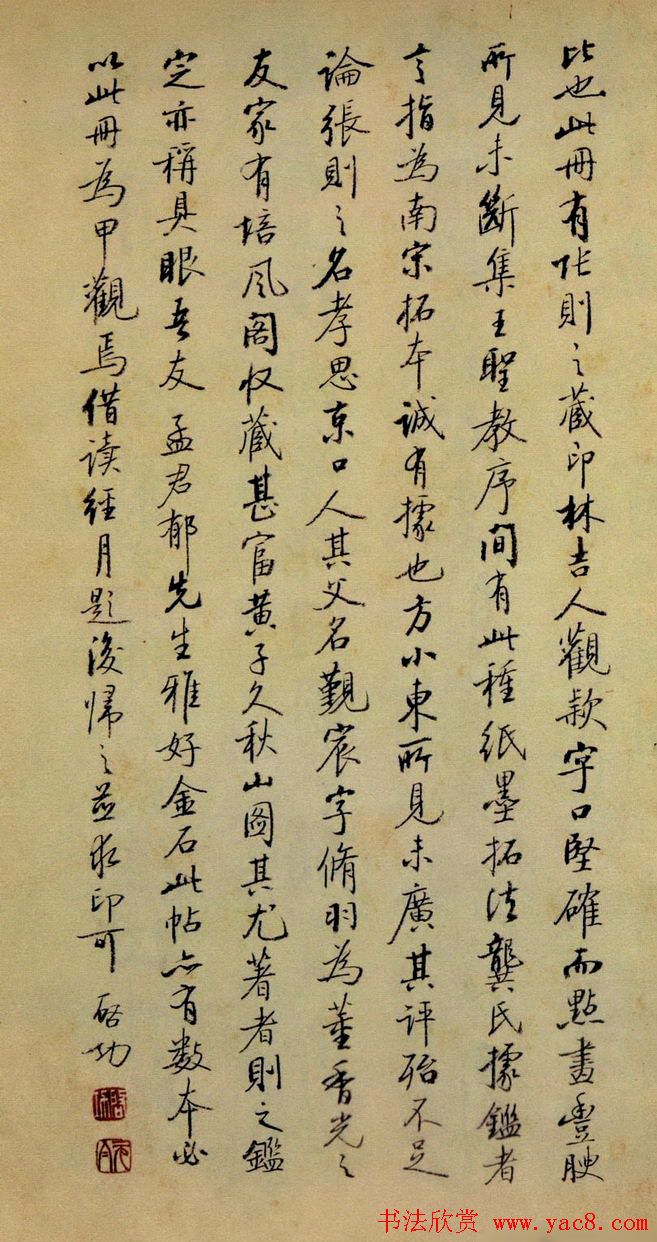 比也此冊有張則之藏印林吉人觀款字口堅確而點畫豐腴
所見未斷集王聖教序間有此種紙墨拓法龔氏據鑑者
言指為南宋拓本誠有據也方小東所見未廣其評殆不足
論張則之名孝思東口人其父名覲宸字脩羽為董香光之
友家有培風閣收藏甚富黃子久秋山圖其尤著者則之鑑
定亦稱具眼吾友孟君郁先生雅好金石此帖亦有數本必
以此冊為甲觀焉借读經月題後歸之並求印可 啓功
书法欣赏 www.yac8.com